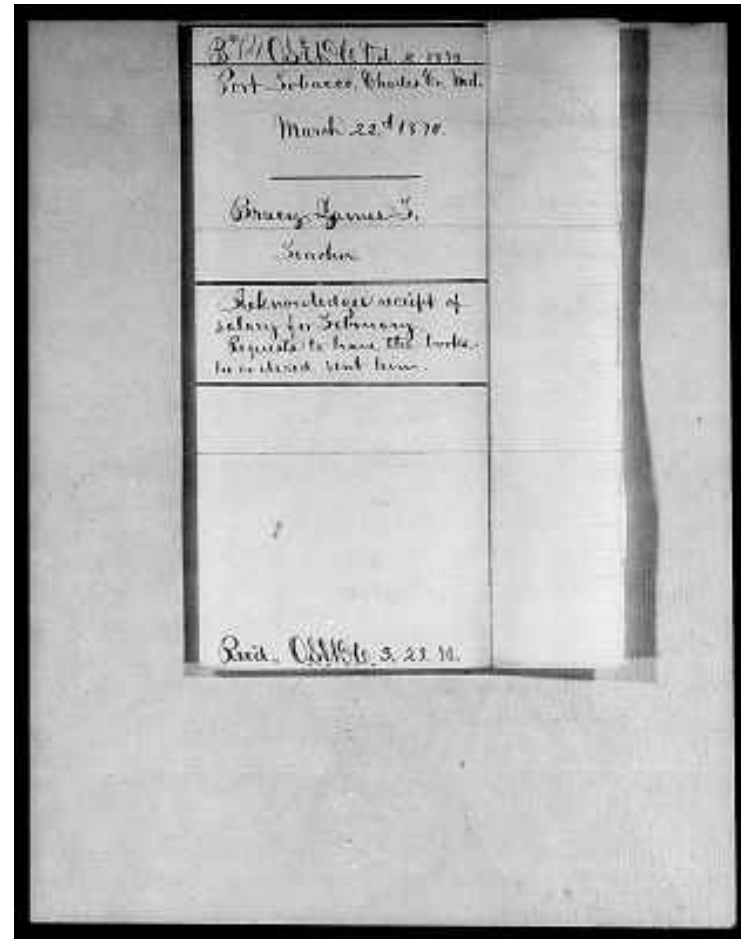 Port Tobacco, Charles Co. Md.
March 22d 1870.
Bracy James T.
Teacher
Acknowledges receipt of
salary for February
Requests to have the books
he ordered sent him.
Recd. 3. 23. 70.